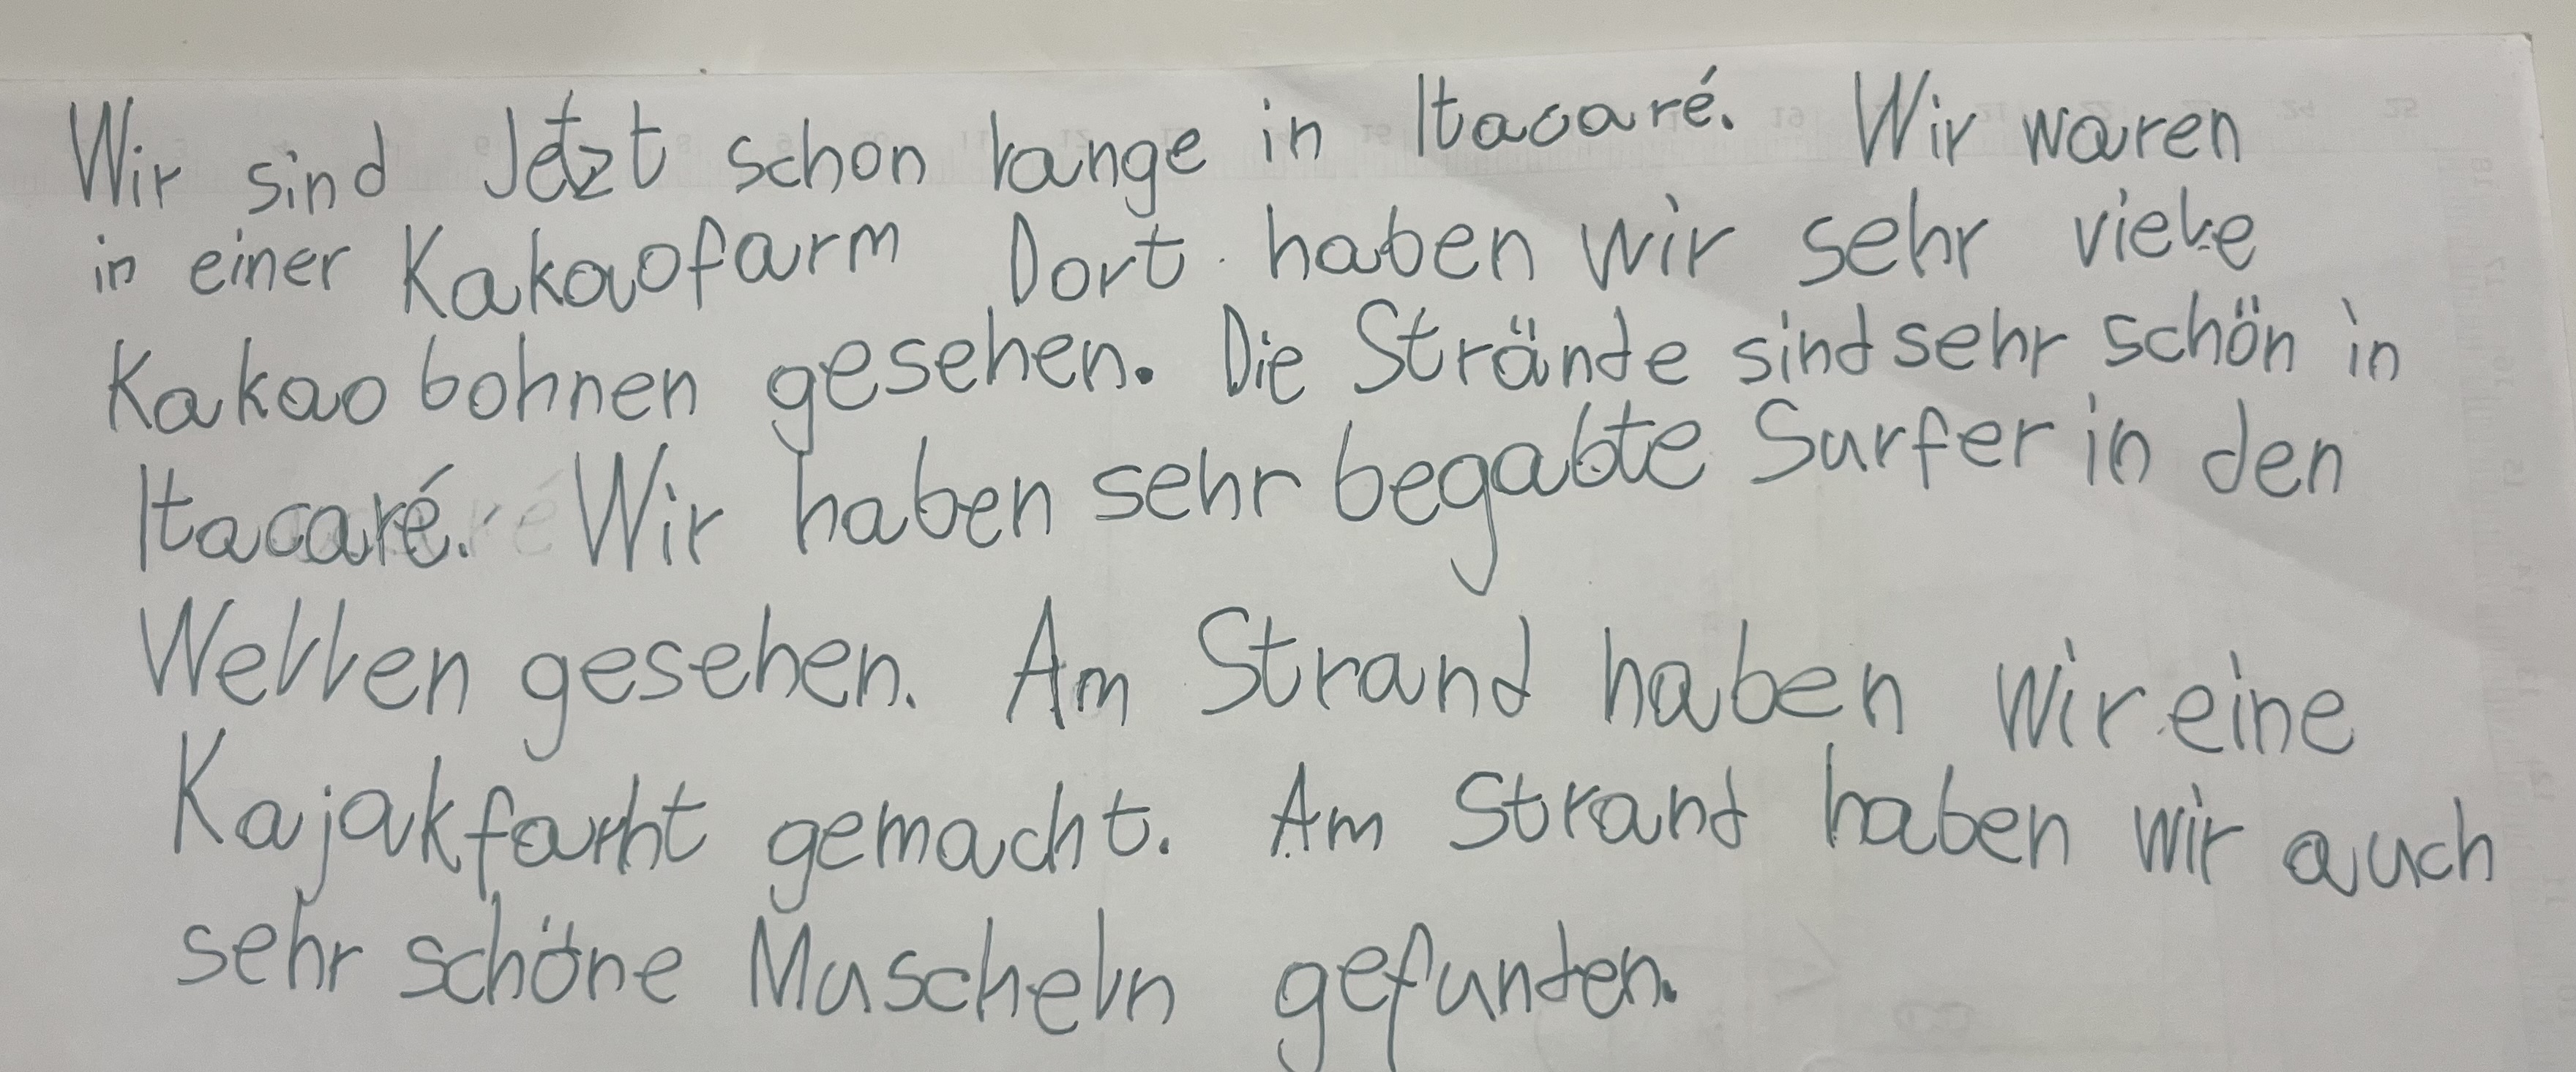 Wir sind Jetzt schon lange in Itacaré. Wir waren
in einer Kakaofarm Dort haben wir sehr viele
Kakaobohnen gesehen. Die Strände sind sehr schön in
Itacaré. Wir haben sehr begabte Surfer in den
Wellen gesehen. Am Strand haben wir eine
Kajakfarht gemacht. Am Strand haben wir auch
sehr schöne Muscheln gefunden.